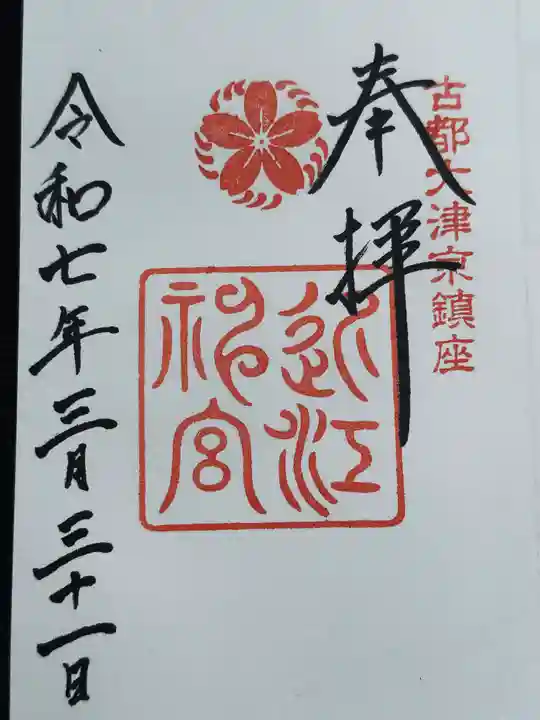 古都大津京鎮座
奉拝
近江神宮
令和七年三月三十一日